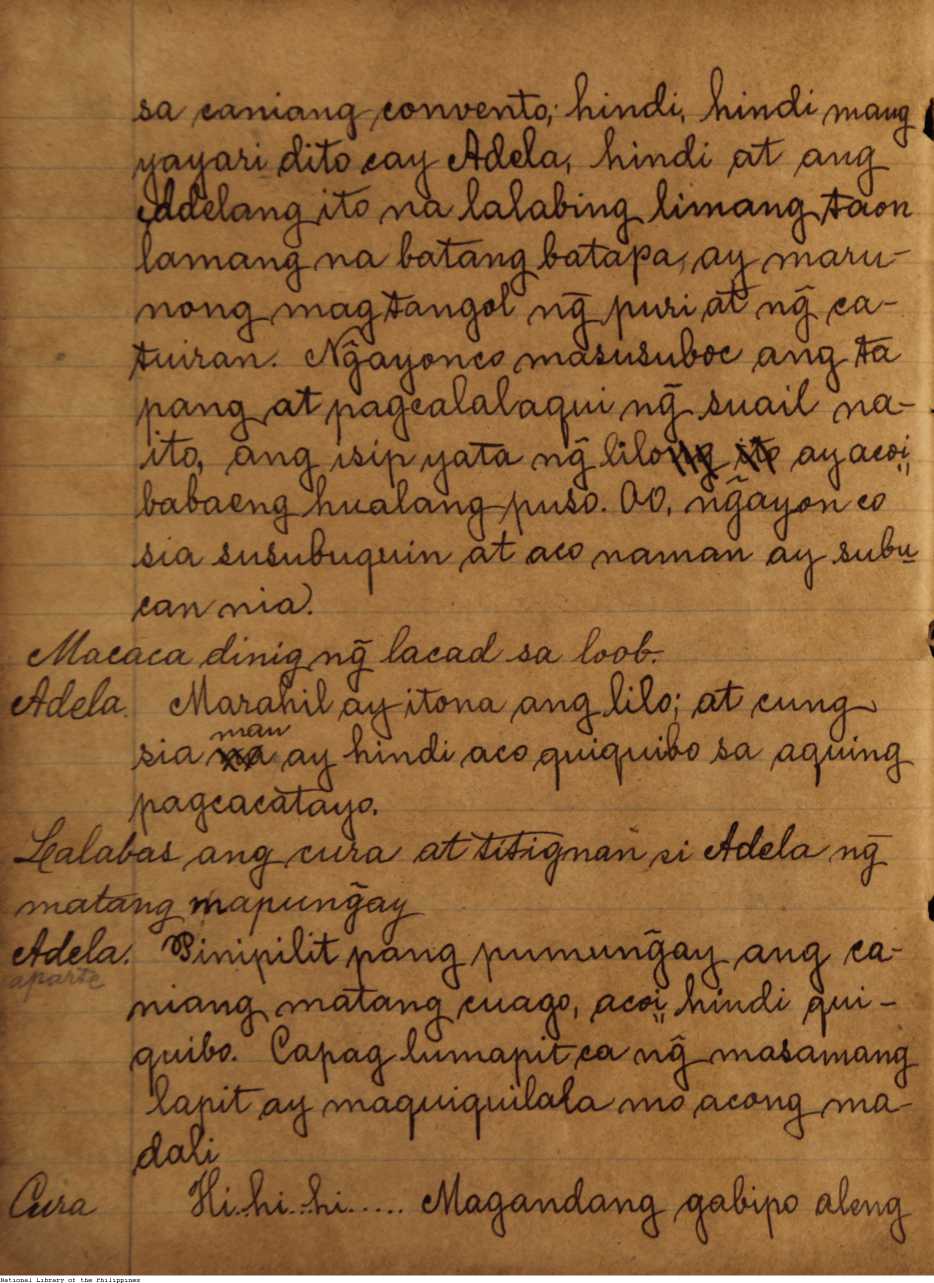 sa caniang convento; hindi, hindi mang
yayari dito cay Adela, hindi at ang
Adelang ito na lalabing limang taon
lamang na batang batapa, ay maru-
nong magtangol ng̃ puri at ng̃ ca-
tuiran. Ng̃ayonco masusuboc ang ta
pang at pagcalalaqui ng̃ suail na-
ito, ang isip yata ng̃ lilong ito ay acoi
babaeng hualang puso. OO, ng̃ayon co
sia susubuquin at aco naman ay subu
can nia).
Macaca dinig ng̃ lacad sa loob.
Adela. Marahil ay itona ang lilo; at cung
man
sia na ay hindi aco quiquibo sa aquing
pagcacatayo.
Lalabas ang cura at titignan si Adela ng̃
matang mapung̃ay
Adela. Pinipilit pang pumung̃ay ang ca-
aparte
niang matang cuago, acoi hindi qui-
quibo. Capag lumapit ca ng̃ masamang
lapit ay maquiquilala mo acong ma-
dali
Cura Hi..hi..hi..... Magandang gabipo aleng
National Library of the Philippines